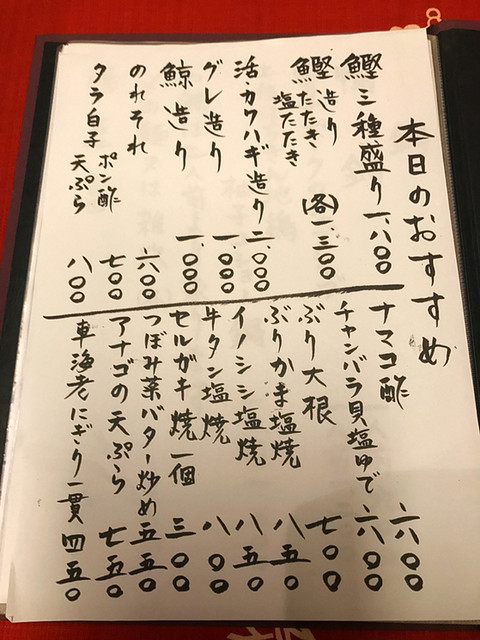 本日のおすすめ
鰹三種盛り 一、八〇〇
鰹 造り たたき 塩たたき (各)一、三〇〇
活・カワハギ造り 二、〇〇〇
グレ造り 一、〇〇〇
鯨造り 一、〇〇〇
のれそれ 六〇〇
タラ白子 ポン酢 七〇〇
天ぷら 八〇〇
ナマコ酢 六〇〇
チャンバラ貝塩ゆで 六〇〇
ぶり大根 七〇〇
ぶりかま塩焼 八五〇
イノシシ塩焼 八五〇
牛タン塩焼 八〇〇
セルガキ焼 一個 三〇〇
つぼみ菜バター炒め 五五〇
アナゴの天ぷら 七五〇
車海老にぎり一貫 四五〇